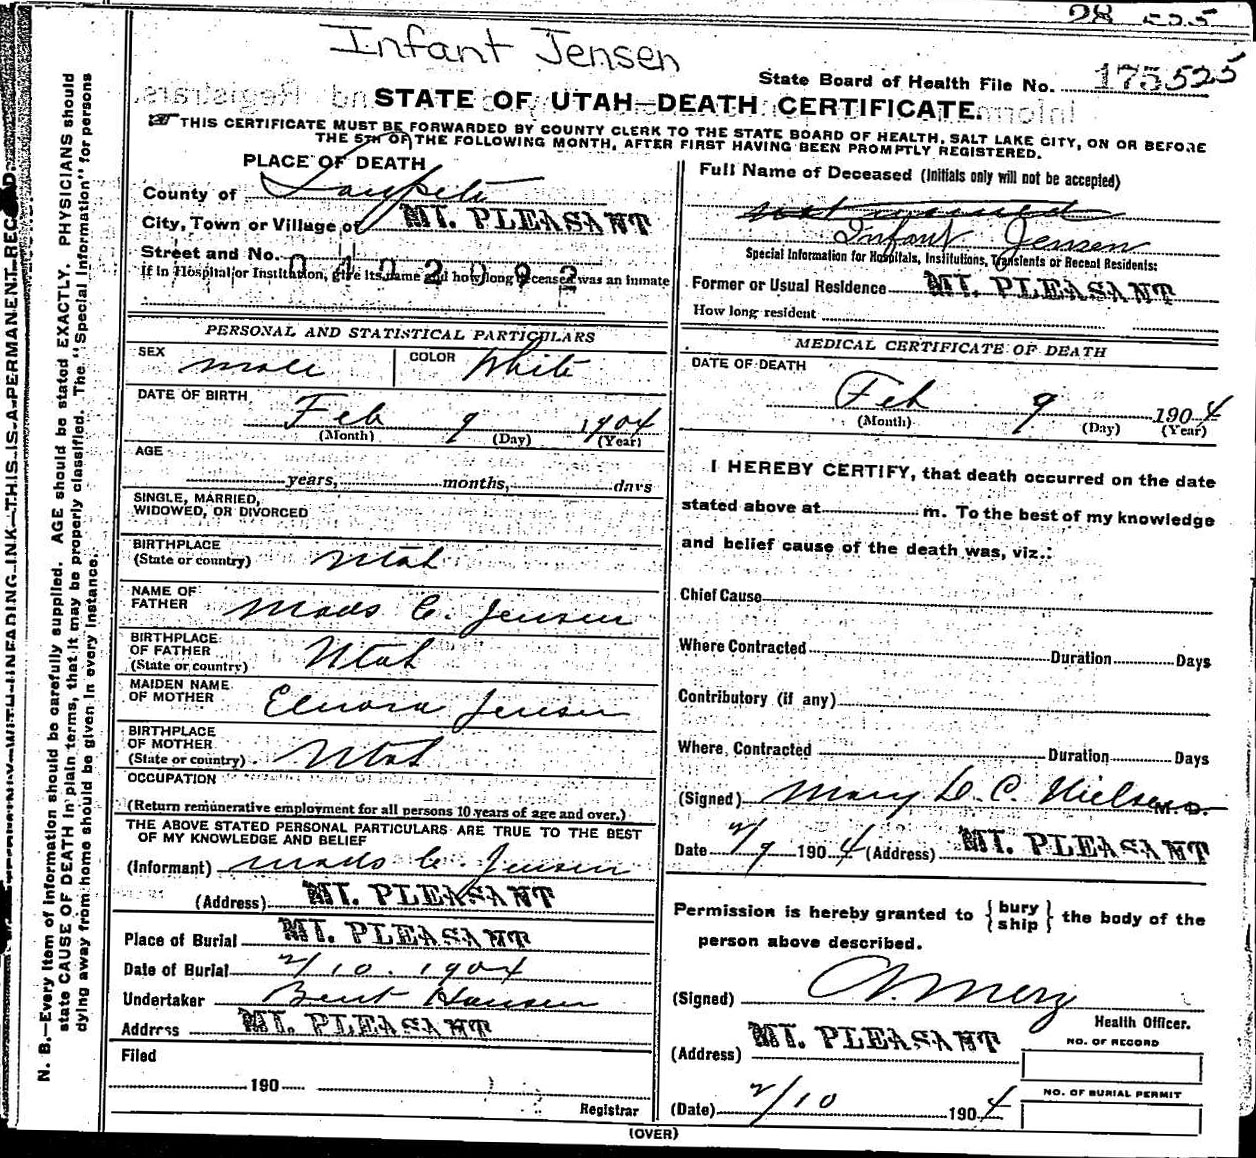 28 555
Infant Jensen
State Board of Health File No. 175525
STATE OF UTAH—DEATH CERTIFICATE.
THIS CERTIFICATE MUST BE FORWARDED BY COUNTY CLERK TO THE STATE BOARD OF HEALTH, SALT LAKE CITY, ON OR BEFORE
THE 5TH OF THE FOLLOWING MONTH, AFTER FIRST HAVING BEEN PROMPTLY REGISTERED.
PLACE OF DEATH
County of Sanpete
City, Town or Village of MT. PLEASANT
Street and No.
0402092
If in Hospital or Institution, give its name and how long deceased was an inmate
PERSONAL AND STATISTICAL PARTICULARS
SEX male COLOR White
DATE OF BIRTH
Feb 9 1904
(Month) (Day) (Year)
AGE
years, months, days
SINGLE, MARRIED,
WIDOWED, OR DIVORCED
BIRTHPLACE
(State or country) Utah
NAME OF
FATHER Mads C. Jensen
BIRTHPLACE
OF FATHER
(State or country) Utah
MAIDEN NAME
OF MOTHER Elnora Jensen
BIRTHPLACE
OF MOTHER
(State or country) Utah
OCCUPATION
(Return remunerative employment for all persons 10 years of age and over.)
THE ABOVE STATED PERSONAL PARTICULARS ARE TRUE TO THE BEST
OF MY KNOWLEDGE AND BELIEF
(Informant) Mads C. Jensen
(Address) MT. PLEASANT
Place of Burial MT. PLEASANT
Date of Burial 2/10.1904
Undertaker Bent Hansen
Address MT. PLEASANT
Filed
190
Registrar
Full Name of Deceased (Initials only will not be accepted)
not named
Infant Jensen
Special Information for Hospitals, Institutions, Transients or Recent Residents:
Former or Usual Residence MT. PLEASANT
How long resident
MEDICAL CERTIFICATE OF DEATH
DATE OF DEATH
Feb 9 1904
(Month) (Day) (Year)
I HEREBY CERTIFY, that death occurred on the date
stated above at m. To the best of my knowledge
and belief cause of the death was, viz.:
Chief Cause
Where Contracted Duration Days
Contributory (if any)
Where Contracted Duration Days
(Signed) Mary D. C. Nielsen M. D.
Date 2/9 1904 (Address) MT. PLEASANT
Permission is hereby granted to {bury
ship} the body of the
person above described.
(Signed) Merz
Health Officer.
(Address) MT. PLEASANT
NO. OF RECORD
NO. OF BURIAL PERMIT
(Date) 2/10 1904
(OVER)
N. B.—Every item of information should be carefully supplied. AGE should be stated EXACTLY. PHYSICIANS should
state CAUSE OF DEATH in plain terms, that it may be properly classified. The "Special Information" for persons
dying away from home should be given in every instance.
WITH UNFADING INK—THIS IS A PERMANENT RECORD.